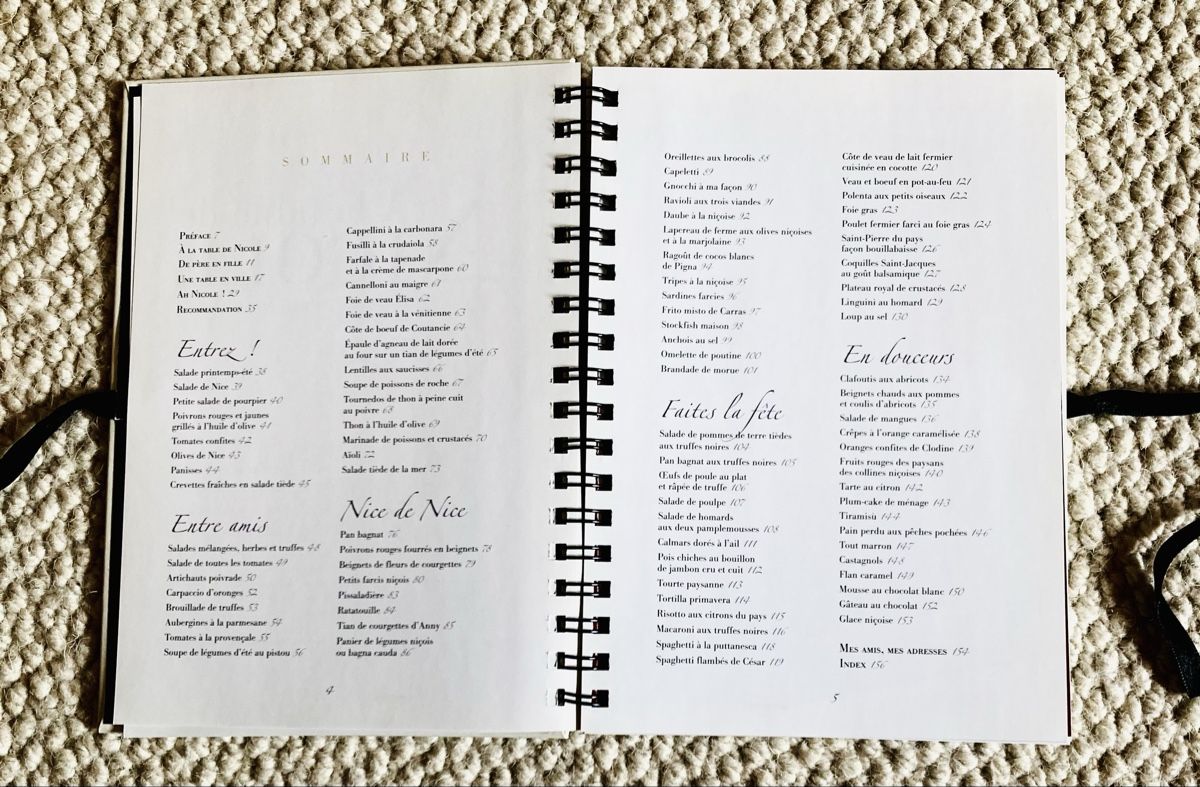 SOMMAIRE
PRÉFACE 7
À LA TABLE DE NICOLE 9
DE PÈRE EN FILLE 11
UNE TABLE EN VILLE 17
AH NICOLE ! 29
RECOMMANDATION 35
Entrez !
Salade printemps-été 38
Salade de Nice 39
Petite salade de pourpier 40
Poivrons rouges et jaunes
grillés à l'huile d'olive 41
Tomates confites 42
Olives de Nice 43
Panisses 44
Crevettes fraîches en salade tiède 45
Entre amis
Salades mélangées, herbes et truffes 48
Salade de toutes les tomates 49
Artichauts poivrade 50
Carpaccio d'oronges 52
Brouillade de truffes 53
Aubergines à la parmesane 54
Tomates à la provençale 55
Soupe de légumes d'été au pistou 56
Cappellini à la carbonara 57
Fusilli à la crudaiola 58
Farfale à la tapenade
et à la crème de mascarpone 60
Cannelloni au maigre 61
Foie de veau Élisa 62
Foie de veau à la vénitienne 63
Côte de boeuf de Coutancie 64
Épaule d'agneau de lait dorée
au four sur un tian de légumes d'été 65
Lentilles aux saucisses 66
Soupe de poissons de roche 67
Tournedos de thon à peine cuit
au poivre 68
Thon à l'huile d'olive 69
Marinade de poissons et crustacés 70
Aïoli 72
Salade tiède de la mer 73
Nice de Nice
Pan bagnat 76
Poivrons rouges fourrés en beignets 78
Beignets de fleurs de courgettes 79
Petits farcis niçois 80
Pissaladière 83
Ratatouille 84
Tian de courgettes d'Anny 85
Panier de légumes niçois
ou bagna cauda 86
4
Oreillettes aux brocolis 88
Capeletti 89
Gnocchi à ma façon 90
Ravioli aux trois viandes 91
Daube à la niçoise 92
Lapereau de ferme aux olives niçoises
et à la marjolaine 93
Ragoût de cocos blancs
de Pigna 94
Tripes à la niçoise 95
Sardines farcies 96
Frito misto de Carras 97
Stockfish maison 98
Anchois au sel 99
Omelette de poutine 100
Brandade de morue 101
Faites la fête
Salade de pommes de terre tièdes
aux truffes noires 104
Pan bagnat aux truffes noires 105
Œufs de poule au plat
et râpée de truffe 106
Salade de poulpe 107
Salade de homards
aux deux pamplemousses 108
Calmars dorés à l'ail 111
Pois chiches au bouillon
de jambon cru et cuit 112
Tourte paysanne 113
Tortilla primavera 114
Risotto aux citrons du pays 115
Macaroni aux truffes noires 116
Spaghetti à la puttanesca 118
Spaghetti flambés de César 119
Côte de veau de lait fermier
cuisinée en cocotte 120
Veau et boeuf en pot-au-feu 121
Polenta aux petits oiseaux 122
Foie gras 123
Poulet fermier farci au foie gras 124
Saint-Pierre du pays
façon bouillabaisse 126
Coquilles Saint-Jacques
au goût balsamique 127
Plateau royal de crustacés 128
Linguini au homard 129
Loup au sel 130
En douceurs
Clafoutis aux abricots 134
Beignets chauds aux pommes
et coulis d'abricots 135
Salade de mangues 136
Crêpes à l'orange caramélisée 138
Oranges confites de Clodine 139
Fruits rouges des paysans
des collines niçoises 140
Tarte au citron 142
Plum-cake de ménage 143
Tiramisù 144
Pain perdu aux pêches pochées 146
Tout marron 147
Castagnols 148
Flan caramel 149
Mousse au chocolat blanc 150
Gâteau au chocolat 152
Glace niçoise 153
MES AMIS, MES ADRESSES 154
INDEX 156
5